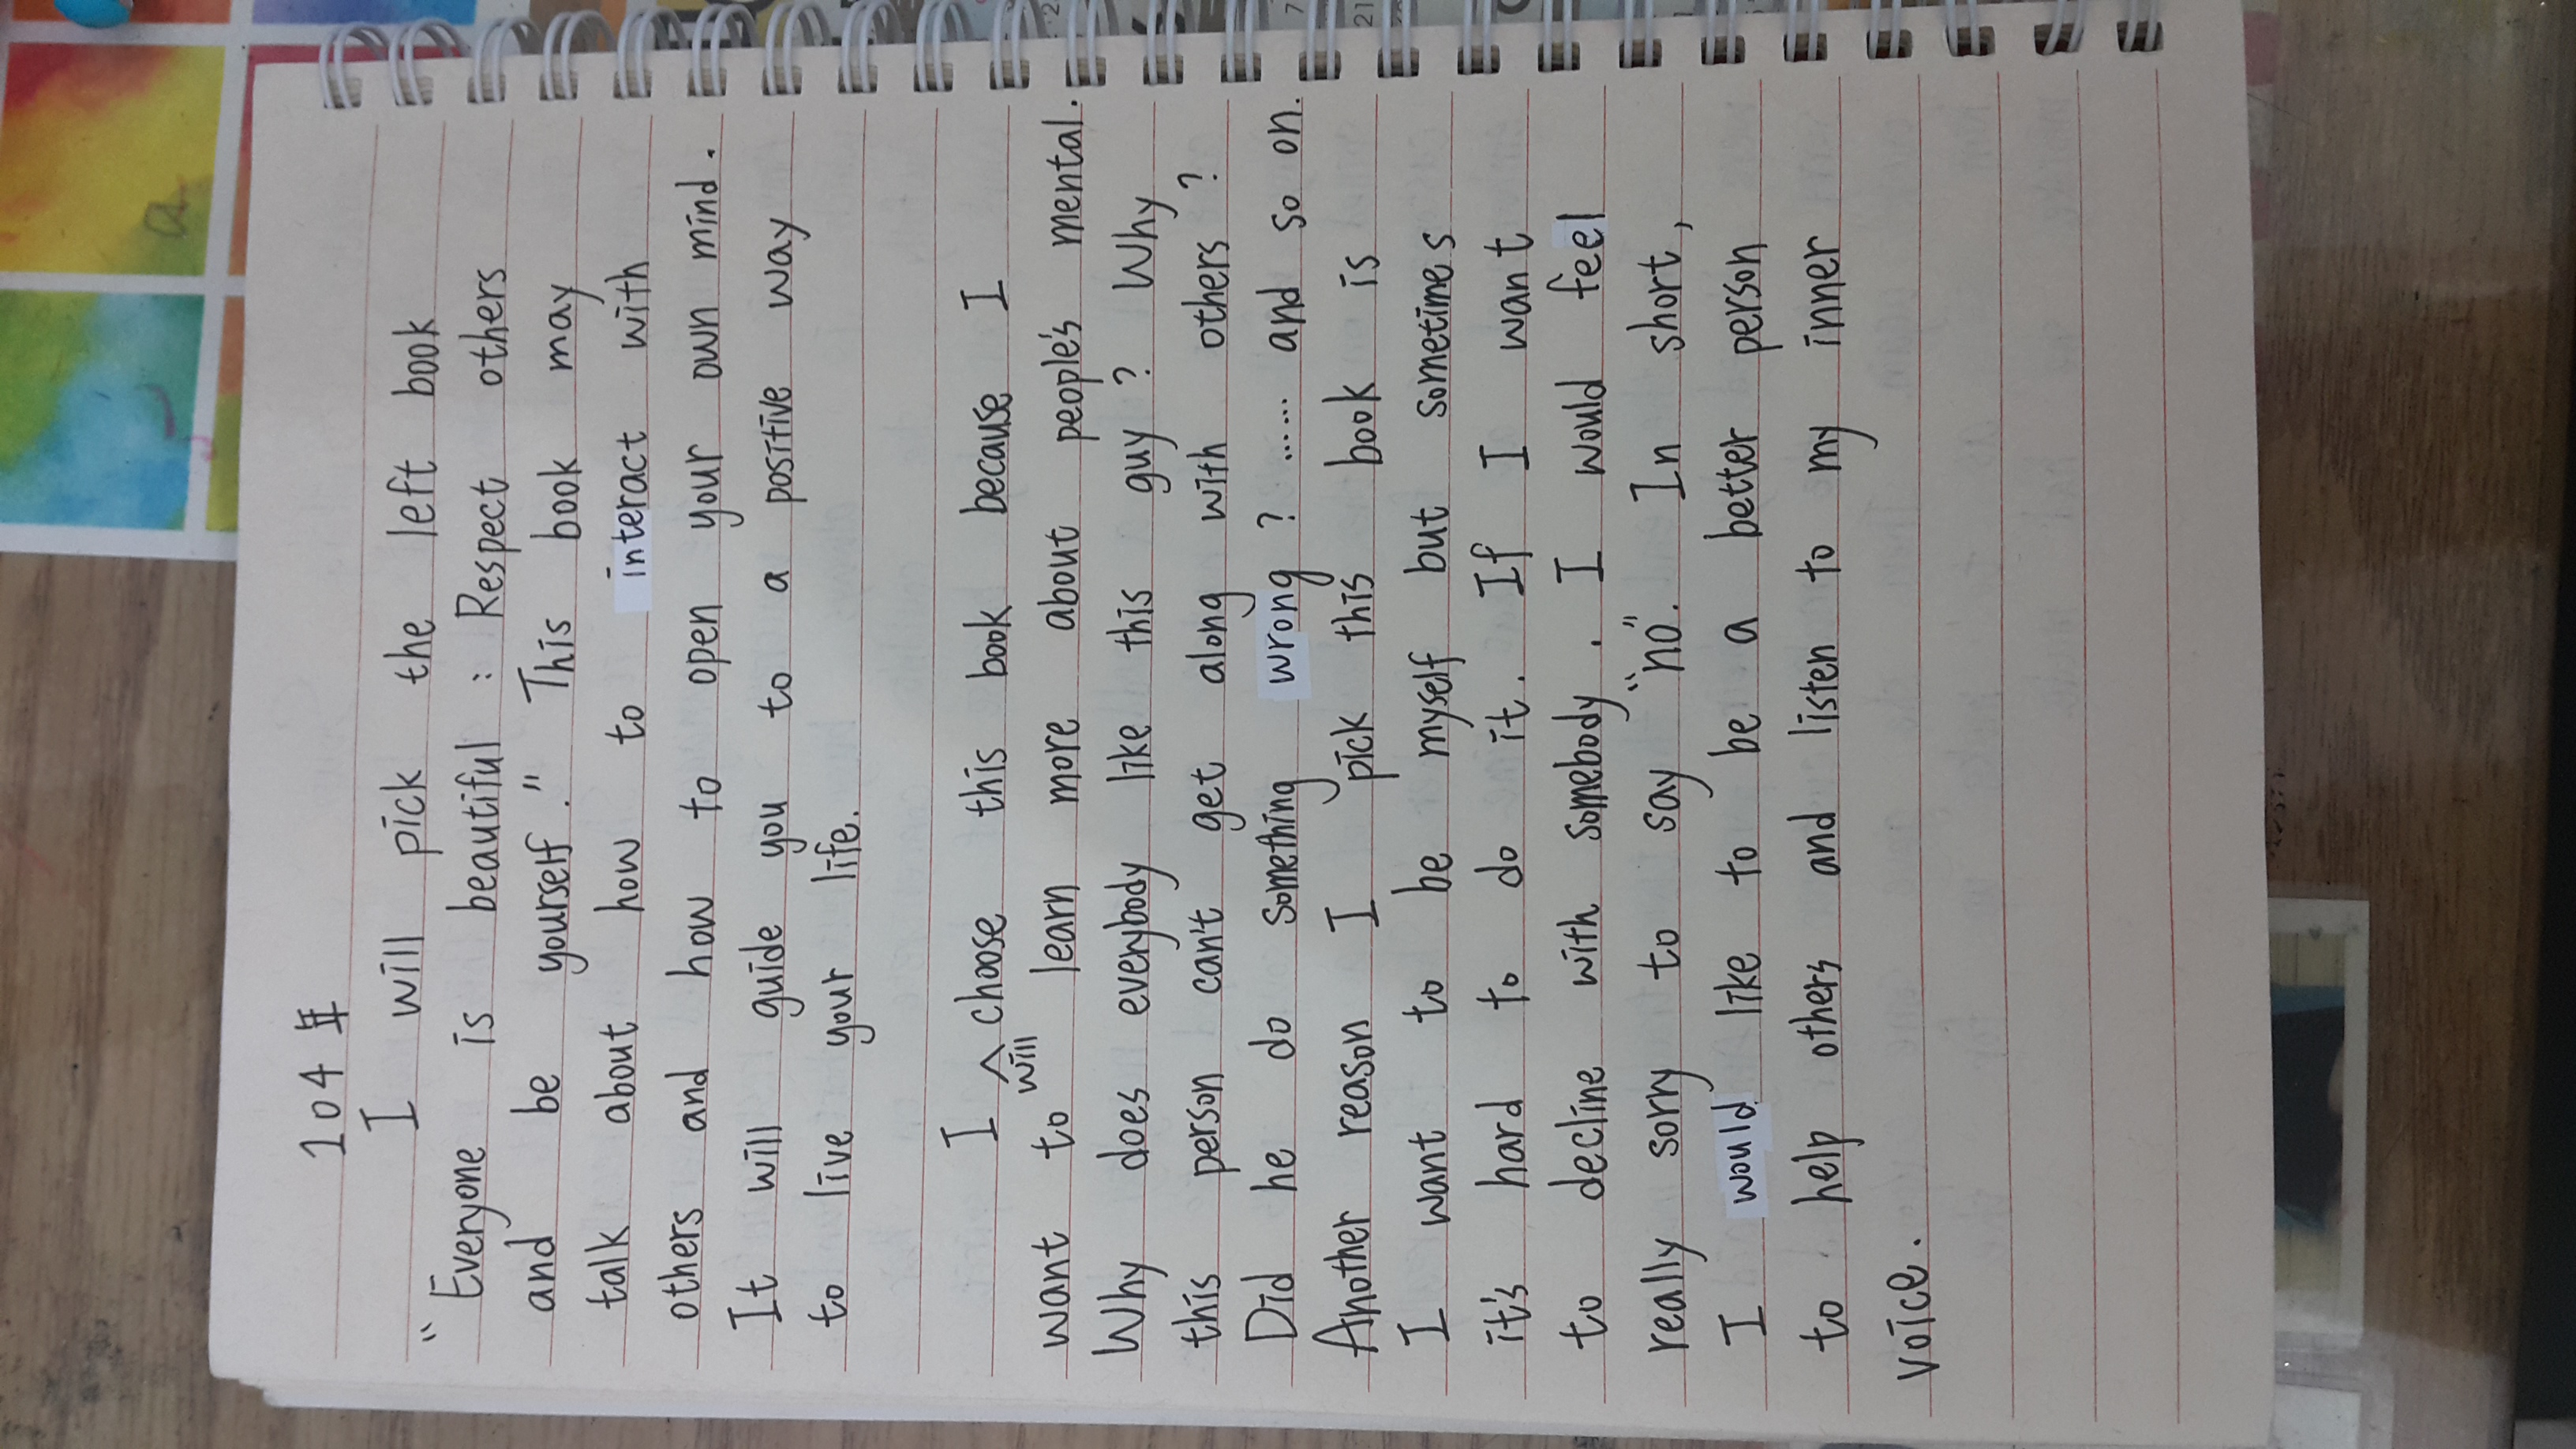 104年
I will pick the left book
"Everyone is beautiful : Respect others
and be yourself." This book may
talk about how to interact with
others and how to open your own mind.
It will guide you to a positive way
to live your life.
I ^ choose this book because I
will
want to learn more about people's mental.
Why does everybody like this guy? Why
this person can't get along with others?
Did he do something wrong? ...... and so on.
Another reason I pick this book is
I want to be myself but sometimes
it's hard to do it. If I want
to decline with somebody. I would feel
really sorry to say "no." In short,
I would like to be a better person
to help others and listen to my inner
voice.